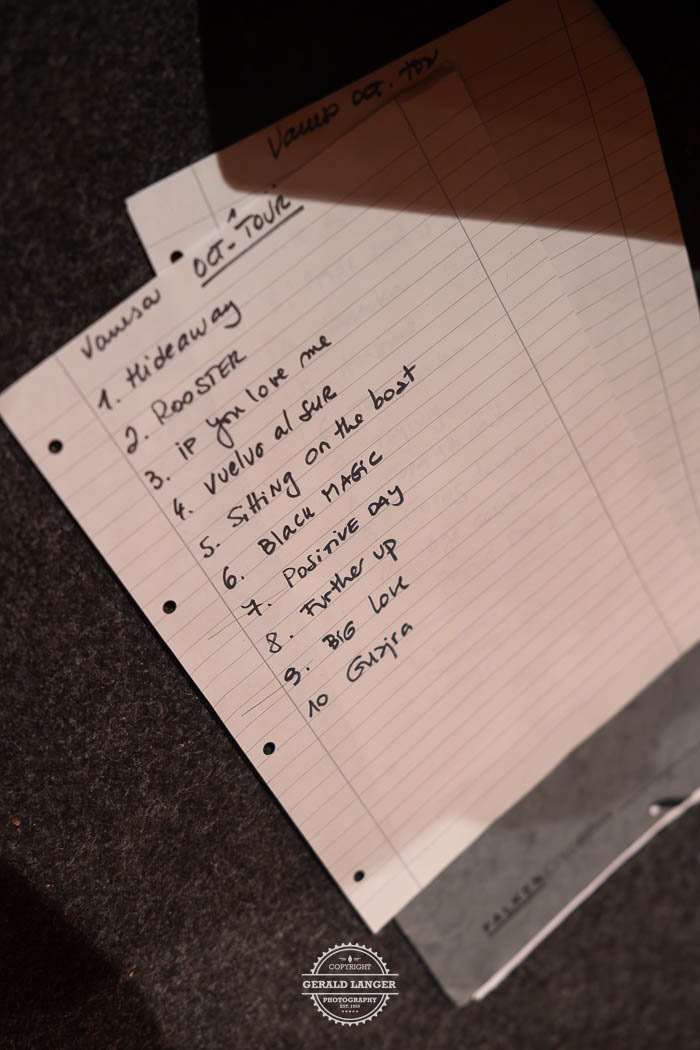 Vanesa OCT. TOU
Vanesa OCT-TOUR
1. Hideaway
2. ROOSTER
3. iF you love me
4. Vuelvo al SUR
5. Sitting on the boat
6. Black MAGiC
7. POSiTiVE DAY
8. Further UP
9. BiG Love
10 Guajira
FALKEN
COPYRIGHT
GERALD LANGER
PHOTOGRAPHY
EST. 1966